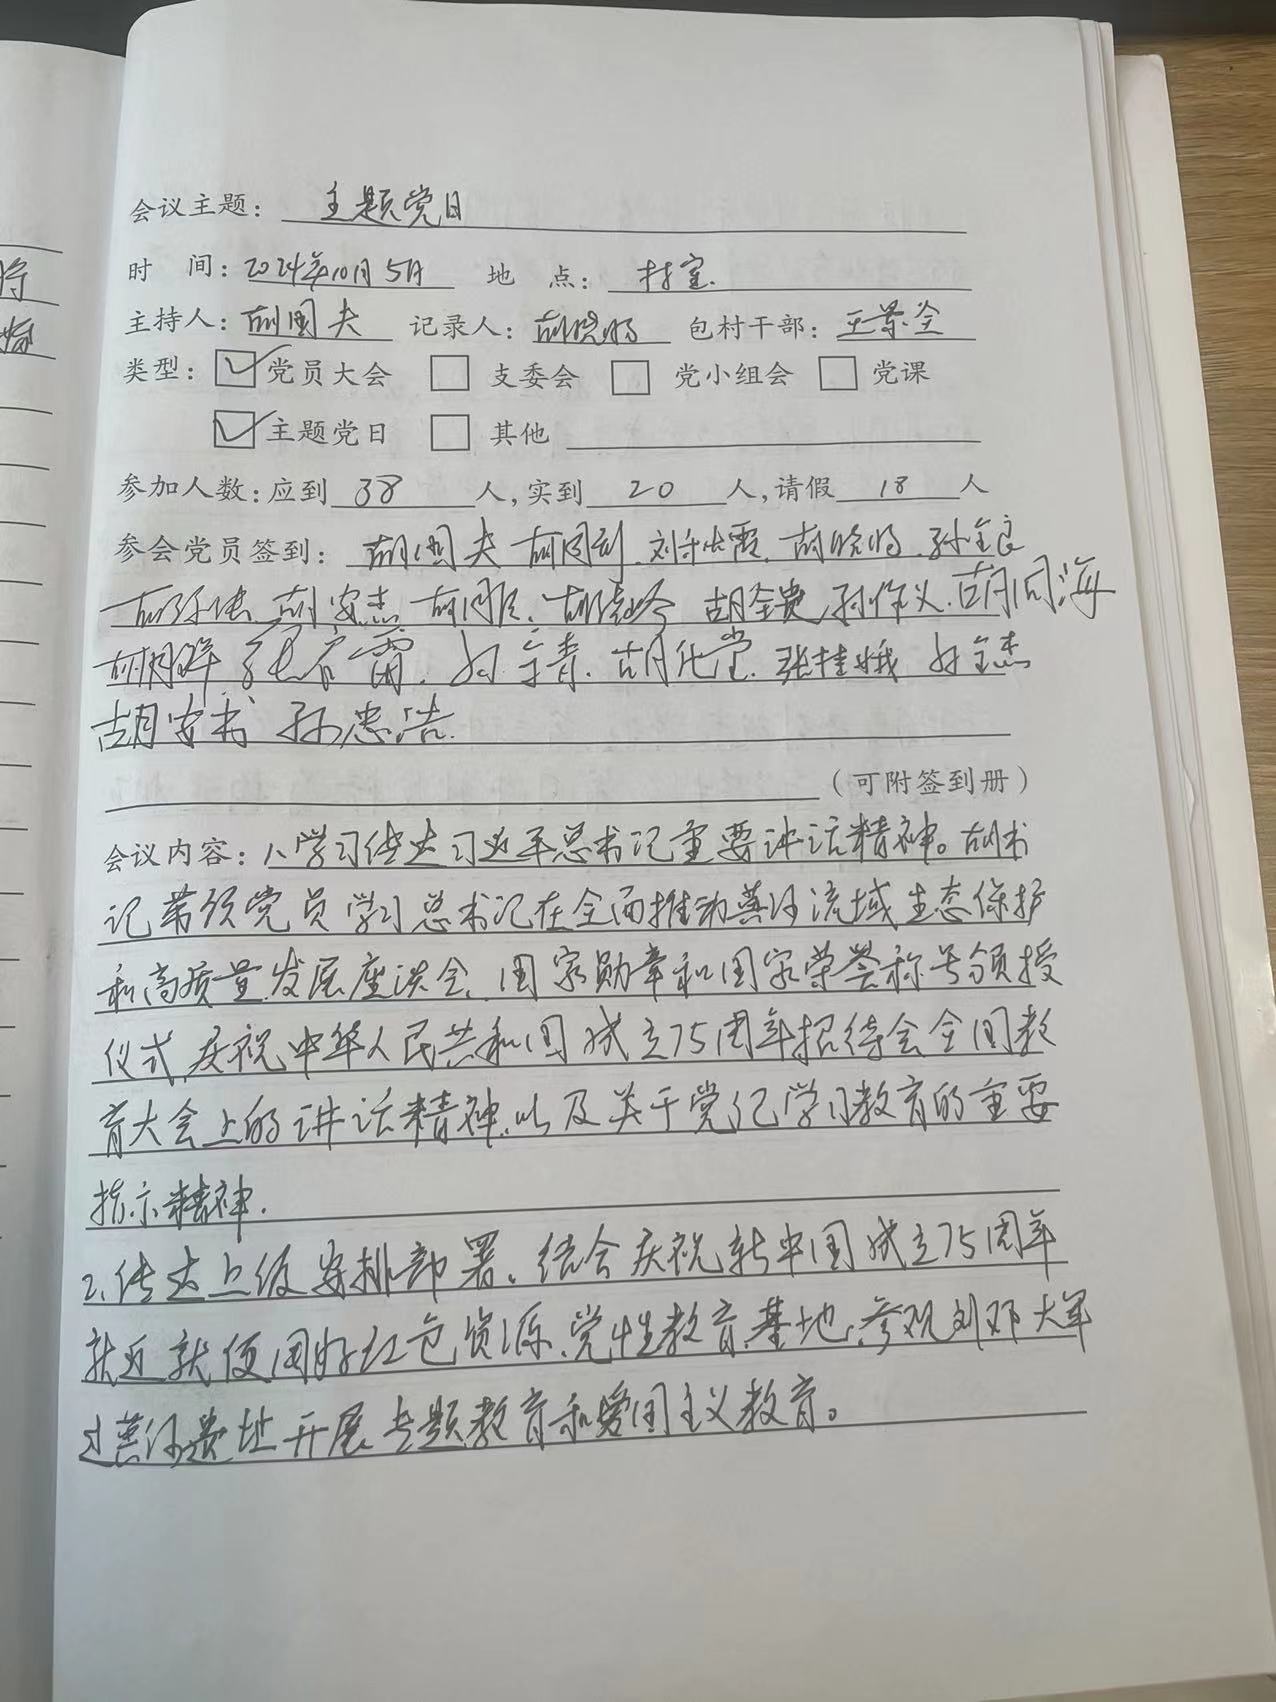 会议主题： 主题党日
时 间：2024年10月5日 地 点： 村室.
主持人：胡国夫 记录人：胡晓 包村干部：王荣全
类型： 党员大会 支委会 党小组会 党课
主题党日 其他
参加人数：应到 38 人，实到 20 人，请假 18 人
参会党员签到： 胡国夫 胡同 刘 霞. 胡晓 . 孙全良
胡 胡安杰 胡同 . 胡 胡全贵 孙作义. 胡同海
胡 张 雷. 孙 青. 胡化堂. 张桂娥 孙全杰
胡安书 孙忠浩.
（可附签到册）
会议内容：1、学习传达习近平总书记重要讲话精神。胡书
记带领党员学习总书记在全面推动黄河流域生态保护
和高质量发展座谈会、国家勋章和国家荣誉称号颁授
仪式、庆祝中华人民共和国成立75周年招待会全国教
育大会上的讲话精神，以及关于党纪学习教育的重要
指示精神.
2、传达上级安排部署。结合庆祝新中国成立75周年
就近就便用好红色资源、党性教育基地，参观刘邓大军
过黄河遗址开展专题教育和爱国主义教育。